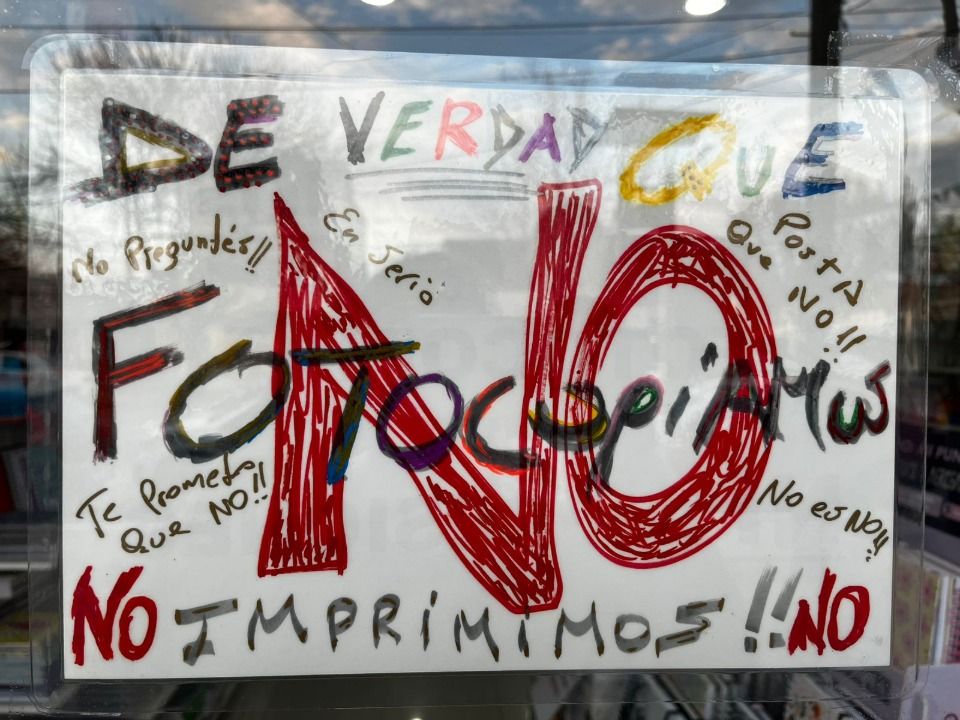 DE VERDAD QUE
No Preguntés!!
En Serio
Posta
Que NO!!
NO
FOTOCOPiAMOS
Te Prometo
Que NO!!
No es NO!!!
NO IMPRiMiMOS !! NO